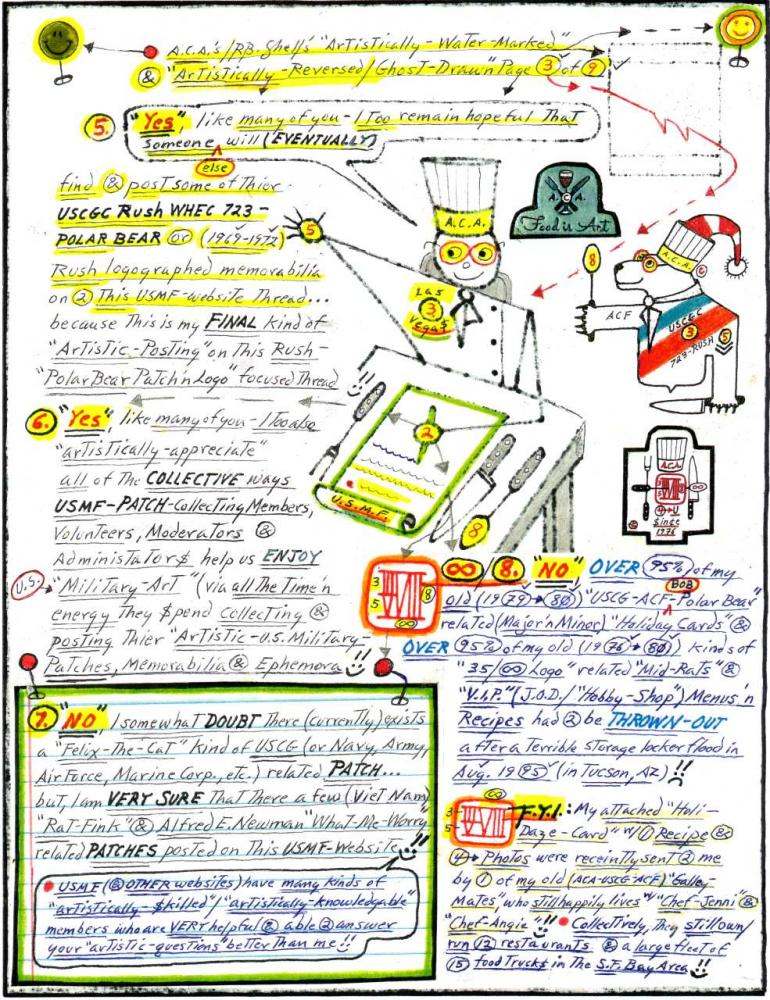 A.C.A.'s/RB.Shell's "ArTisTically-WaTer-Marked"
& "ArTisTically-Reversed/GhosT-Drawn" Page 3 of 9
5. "Yes", like many of you - I Too remain hopeful ThaT
someone will (EVENTUALLY)
else
find & posT some of Thier
USCGC Rush WHEC 723 -
POLAR BEAR or (1969-1972)
Rush logographed memorabilia
on 2 This USMF-websiTe Thread...
because This is my FINAL kind of
"ArTisTic-PosTing" on This Rush-
"Polar Bear PaTch n Logo" focused Thread
5
A.C.A.
Las
3
Vega$
A. C. A.
Food is Art
8
A.C.A.
ACF
USCGC
3
723-RUSH
5
2
U.S.M.F.
8
A.C.A.
Since
1976
6. "Yes", like many of you - I Too also
"arTisTically-appreciaTe"
all of The COLLECTIVE ways
USMF-PATCH-CollecTing Members,
VolunTeers, ModeraTors &
AdminisTaTor$ help us ENJOY
U.S. "MiliTary-ArT" (via all The Time 'n
energy They $pend CollecTing &
posTing Thier "ArTisTic-U.S. MiliTary-
PaTches, Memorabilia & Ephemora"!!
7. "NO", I somewhaT DOUBT There (currenTly) exisTs
a "Felix-The-CaT" kind of USCG (or Navy, Army,
Air Force, Marine Corp., eTc.) relaTed PATCH...
buT, I am VERY SURE ThaT There a few (VieT Nam)
"RaT-Fink" & Alfred E. Newman "WhaT-Me-Worry"
relaTed PATCHES posTed on This USMF-WebsiTe!!
USMF (& OTHER websiTes) have many kinds of
"arTisTically-$killed"/"arTisTically-knowledgable"
members who are VERY helpful & able 2 answer
your "arTisTic-quesTions" beTTer Than me!!
3
5
8
∞
∞ 8. "NO" OVER 95% of my
old (1979→80) "USCG-ACF-Polar Bear"
BOB
relaTed (Major 'n Minor) "Holiday Cards" &
OVER 95% of my old (1976→80) kinds of
"35/∞ Logo" relaTed "Mid-RaTs" &
"V.I.P." (J.O.D./"Hobby-Shop") Menus 'n
Recipes had 2 be THROWN-OUT
afTer a Terrible sTorage locker flood in
Aug. 1995 (in Tucson, AZ)!!
∞
3
5
F.Y.I.: My aTTached "Holi-
Daze-Card" w/1 Recipe &
4 PhoTos were receinTly senT 2 me
by 1 of my old (ACA-USCG-ACF) "Galley-
MaTes", who sTill happily lives w/ "Chef-Jenni" &
"Chef-Angie"!! CollecTively, They sTill own/
run 12 resTauranTs & a large fleeT of
15 food Truck$ in The S.F. Bay Area!!